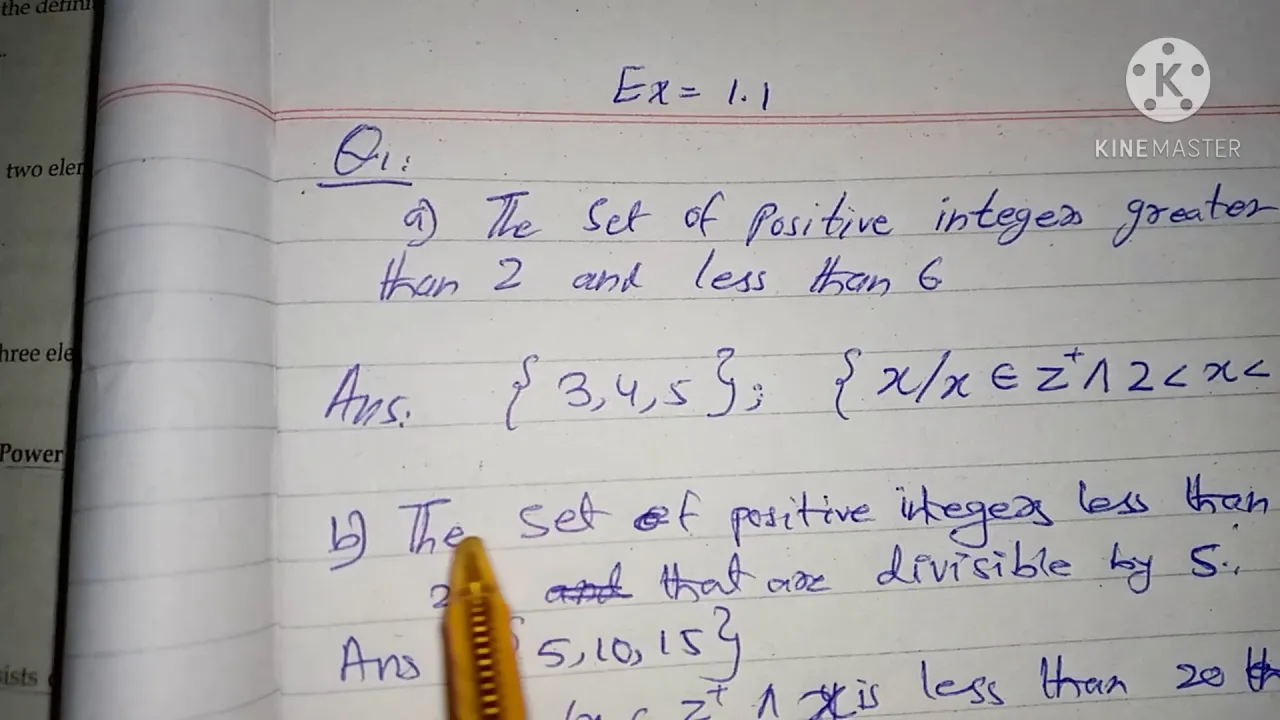 the defini
two elem
three ele
Power
sists
K
KINEMASTER
Ex = 1.1
Q1:
a) The set of positive integers greater
than 2 and less than 6
Ans. {3,4,5}; {x/x ∈ Z⁺ ∧ 2 < x <
b) The set of positive integers less than
2 and that are divisible by 5.
Ans {5,10,15}
Z⁺ ∧ x is less than 20 th